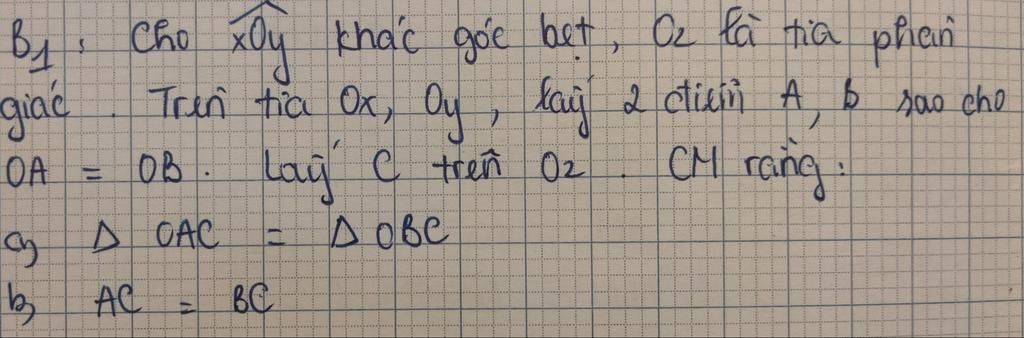 B1 : Cho xOy khác góc bẹt, Oz là tia phân
giác. Trên tia Ox, Oy, lấy 2 điểm A, b sao cho
OA = OB. Lấy C trên Oz. CM rằng:
a) Δ OAC = Δ OBC
b) AC = BC